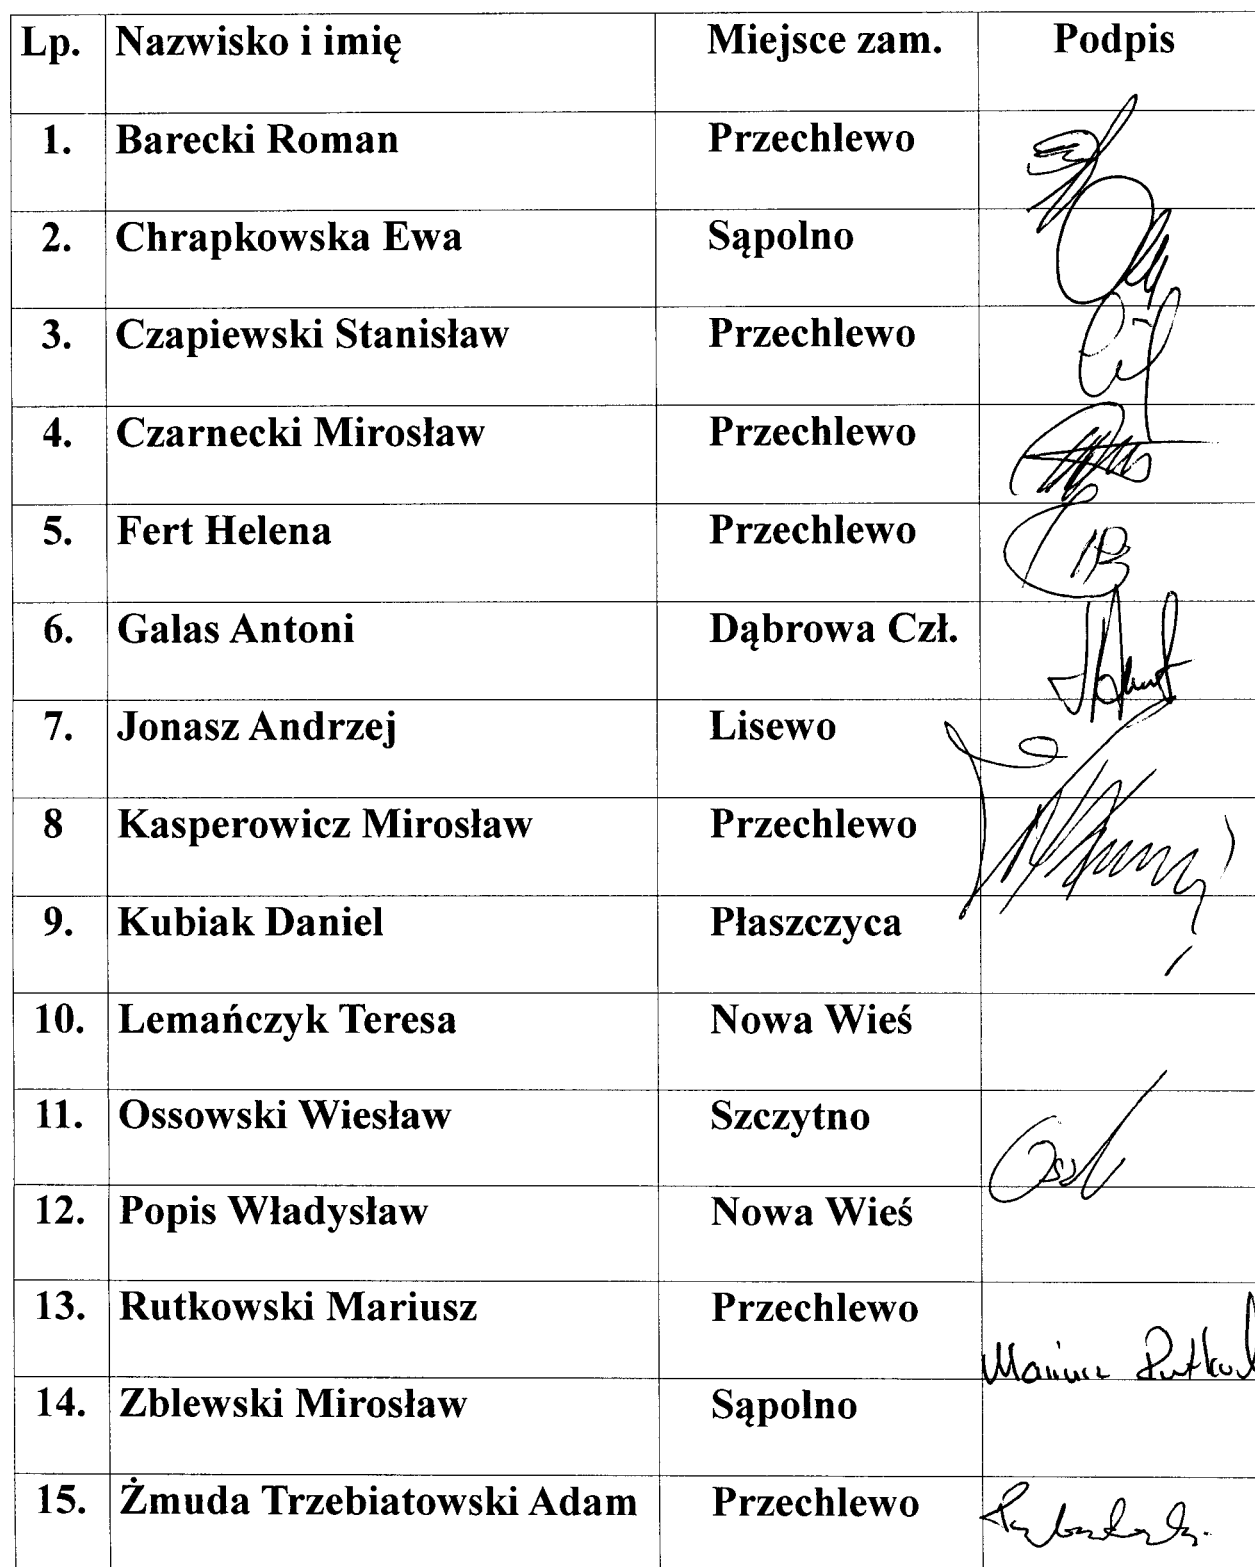 Lp. Nazwisko i imię Miejsce zam. Podpis
1. Barecki Roman Przechlewo
2. Chrapkowska Ewa Sąpolno
3. Czapiewski Stanisław Przechlewo
4. Czarnecki Mirosław Przechlewo
5. Fert Helena Przechlewo
6. Galas Antoni Dąbrowa Czł.
7. Jonasz Andrzej Lisewo
8 Kasperowicz Mirosław Przechlewo
9. Kubiak Daniel Płaszczyca
10. Lemańczyk Teresa Nowa Wieś
11. Ossowski Wiesław Szczytno
12. Popis Władysław Nowa Wieś
13. Rutkowski Mariusz Przechlewo Mariusz
14. Zblewski Mirosław Sąpolno
15. Żmuda Trzebiatowski Adam Przechlewo